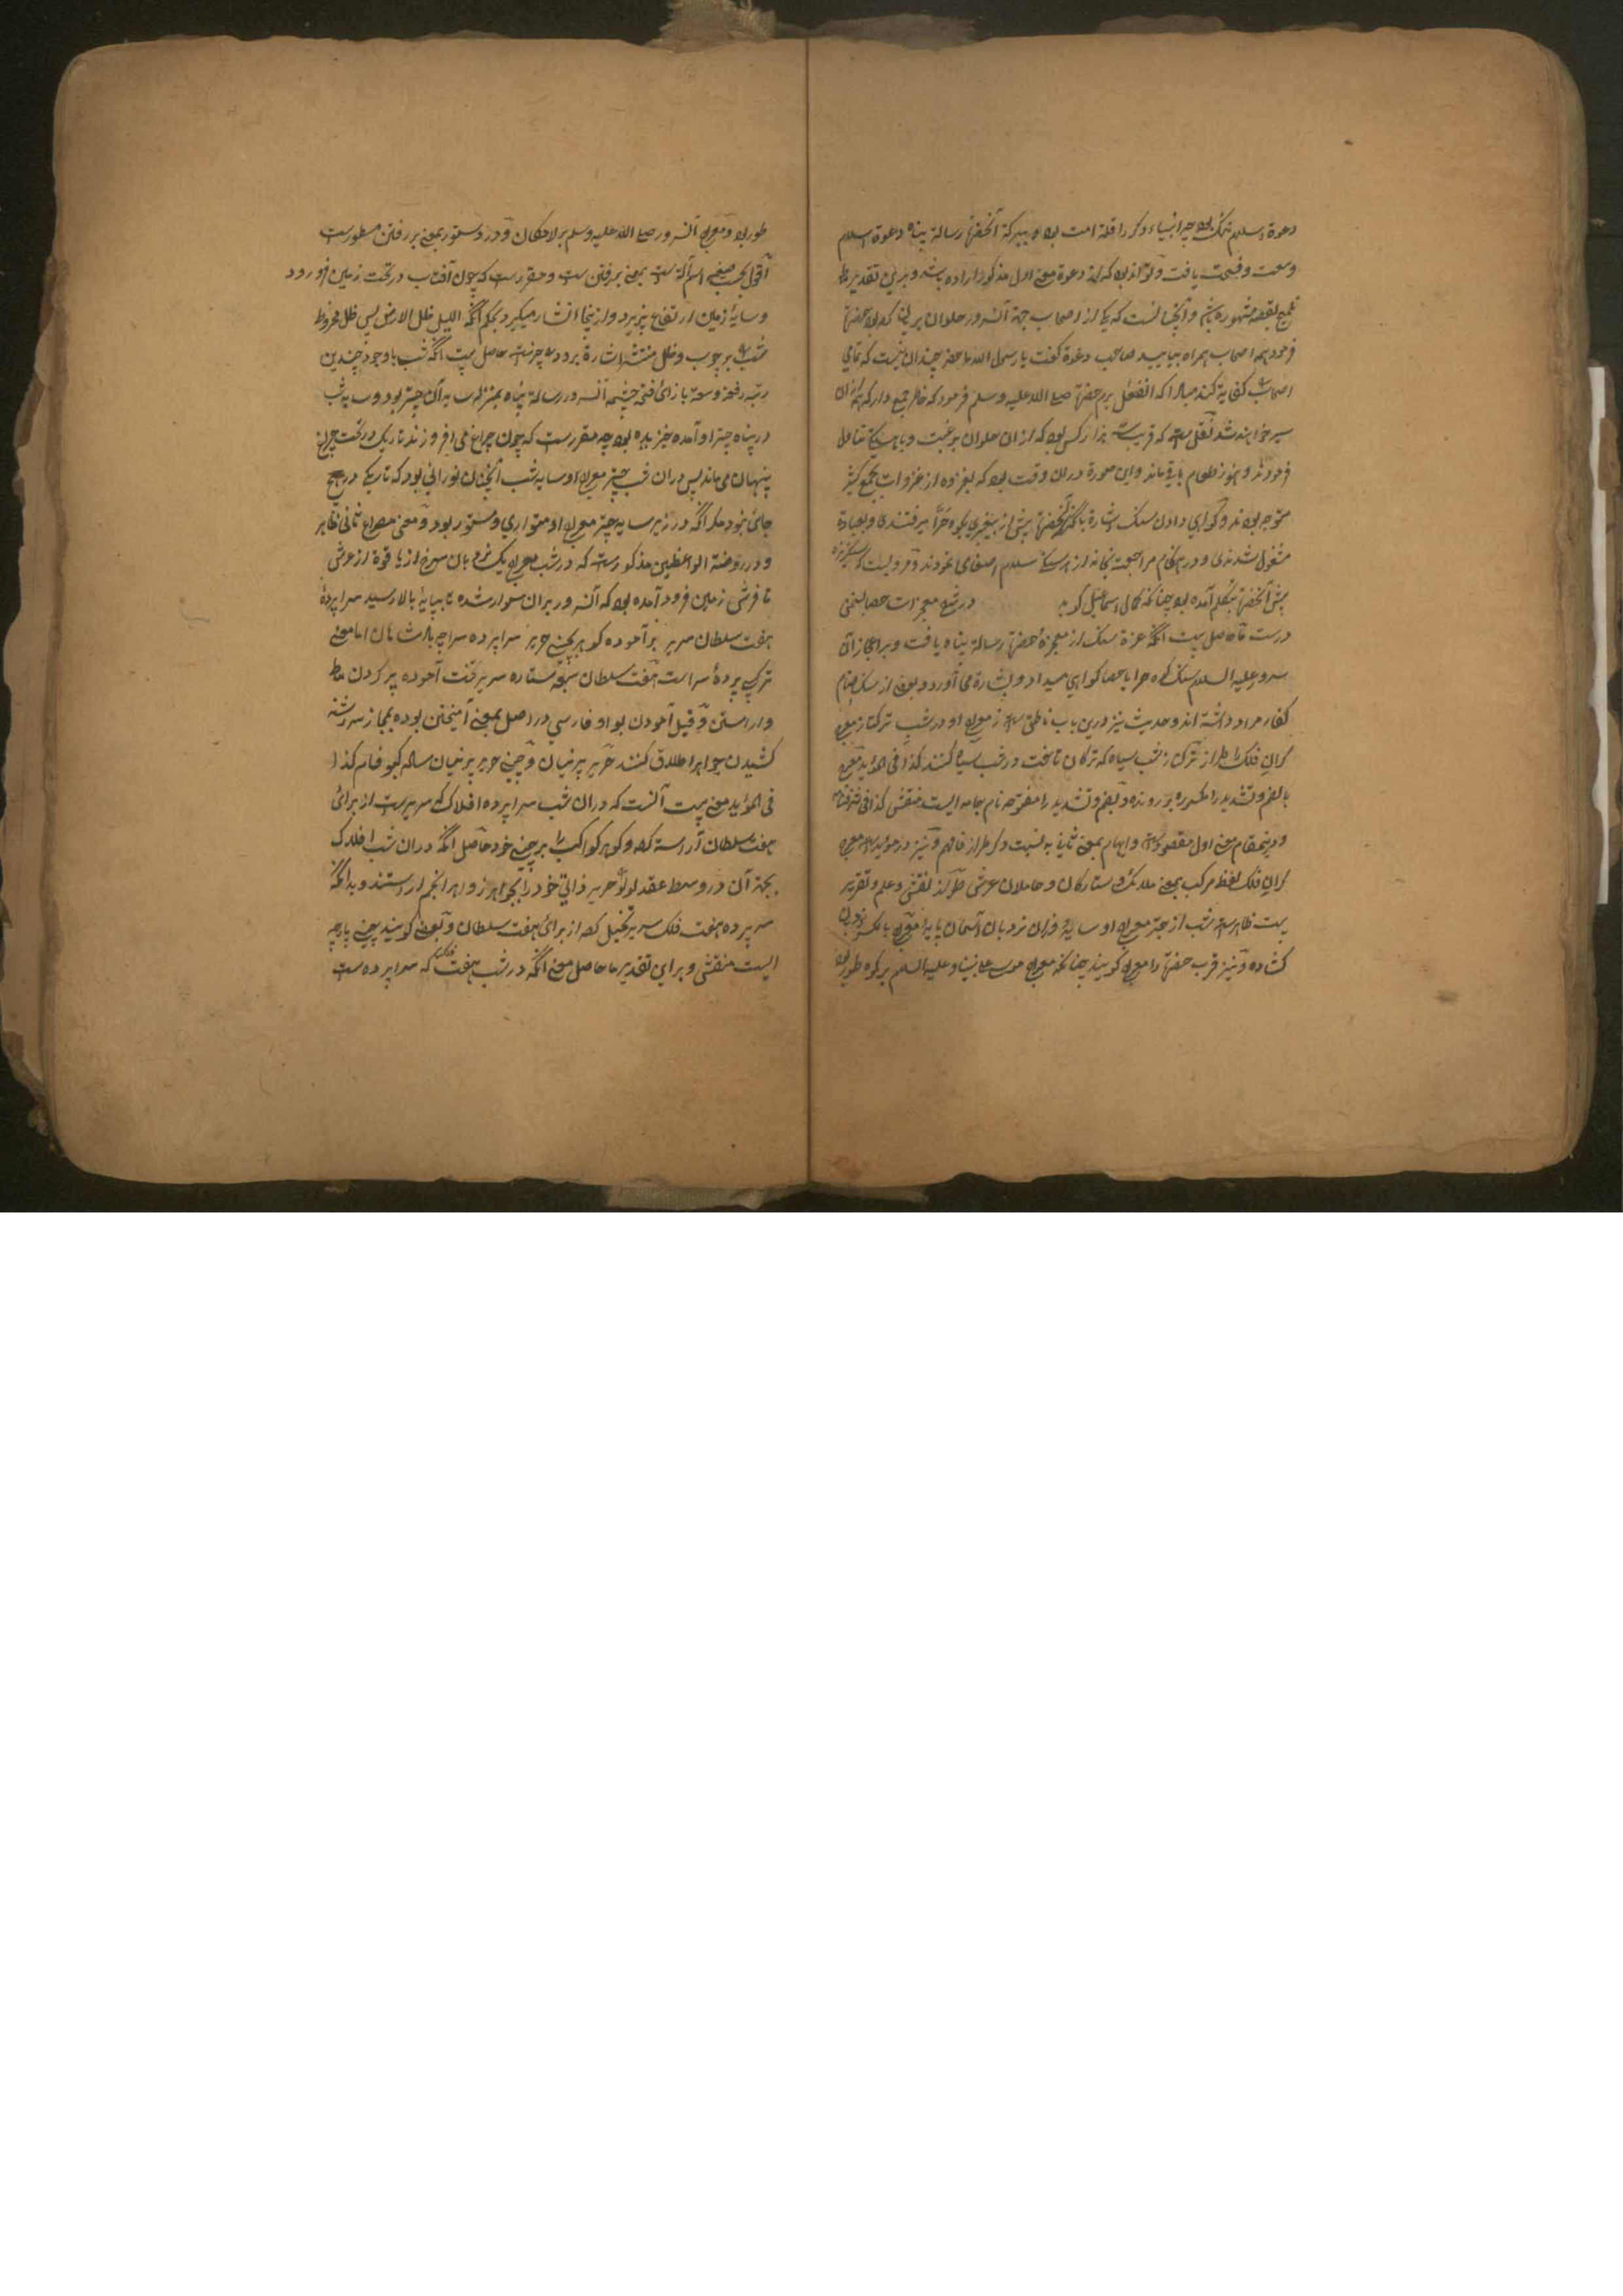 دعوة اسلام تنگ بود چه انبیاء دیگر را قلة امت بود و ببرکة آنحضرة رسالة پناه دعوة اسلام
وسعت و فسحت یافت و تواند بود که از دعوة معنی اول مذکور اراده باشد و برین تقدیر
تلمیح بقصه مشهوره باشد و آنچنانست که یکی از اصحاب جهة آنسرور حلوان بریان کرده بود حضرة
فرمود همه اصحاب همراه بیایید صاحب دعوة گفت یا رسول الله ما حضر چندان نیست که تمامی
اصحاب کفایة کند مبادا که انفعال برم حضرة صلی الله علیه وسلم فرمود که خاطر جمع دار که همه ازان
سیر خواهند شد نقلی ست که قریب هزار کس بود که ازان حلوان برغبت تناول
فرمودند و هنوز طعام باقی ماند و این صورة دران وقت بود که بغزوه از غزوات بجمع کثیر
متوجه بودند و گواهی دادن سنگ اشارة بآنکه آنحضرة پیش از پیغمبری بکوه حرا میرفتندی و بعبادة
مشغول شدندی و در هنگام مراجعت بخانه از هر سنگی سلام اصغا می نمودند و مرویست که سنگریزه
پیش آنحضرة بتکلم آمده بود چنانکه کمال اسماعیل گوید در شرع معجزات حصا بسخن
درست ما حاصل بیت آنکه عزة سنگ از معجزهٔ حضرة رسالة پناه یافت و بر اعجاز آن
سرور علیه السلام سنگ کوه حرا یا حصا گواهی میداد و بشارة می آورد و بعضی از سنگ اصنام
کفار مراد داشته اند و حدیث نیز درین باب ناطق ست ز معراج او در شب ترکتاز معرج
گران فلک را طراز ترکتاز شب سیاه که ترکان تاخت در شب سیاه کنند کذا فی المؤید معرج
بالضم و تشدید را مکسوره بر رونده و بضم و تشدید را مفتوحه نام جامه ایست منقش کذا فی شرفنامه
و درینمقام معنی اول مقصود ست و ایهام بمعنی ثانی به نسبت ذکر طراز فافهم و نیز در مؤید ست معرج
گران فلک لفظ مرکب بمعنی ملائک و ستارگان و حاملان عرش طراز نقش و علم و تقریر
بیت ظاهر ست شب از چتر معراج او سایهٔ وزان نردبان آسمان پایهٔ معراج بالکسر نردبان
کشاده و نیز قرب حضرة را معراج گویند چنانکه معراج موسی علی نبینا و علیه السلام بر کوه طور بود
طور بود و معراج آنسرور صلی الله علیه وسلم بر لامکان و در دستور بمعنی بر رفتن مسطورست
اقول بحسب صیغه اسم آلة ست بمعنی بر رفتن ست و مقررست که چون آفتاب در تحت زمین فرو رود
و سایهٔ زمین ارتفاع پذیرد و ازینجا انتشار میگیرد بحکم آنکه اللیل ظل الارض پس ظل مخروط
شب بر چوب و ظل منتشر اشارة بر دو چتر ست حاصل بیت آنکه شب باوجود چندین
رتبه رفعة وسعة بازای فتح چشمه آنسرور رسالة پناه بمنزله سایه آن چتر بود و سایه شب
در پناه چتر او آمده خزیده بود چه مقررست که چون چراغ می افروزند تاریکی در تحت چراغ
پنهان می ماند پس دران شب چتر معراج او سایه شب آنچنان نورانی بود که تاریکی در هیچ
جای نبود مگر آنکه در زیر سایه چتر معراج او متواری و مستور بود و معنی مصراع ثانی ظاهر
و در روضة الواعظین مذکورست که در شب معراج یک نردبان سرخ از یاقوة از عرش
تا فرش زمین فرود آمده بود که آنسرور بران سوار شده تا بپایهٔ بالا رسید سراپردهٔ
هفت سلطان سریر برآموده گوهر بچینی حریر سراپرده سراچه پادشاهان اما معنی
ترکیب پردهٔ سراست هفت سلطان سبعه ستاره سریر تخت آموده پر کردن
و آراستن و قیل آمودن بواو فارسی در اصل بمعنی آمیختن بوده بمجاز سررشته
کشیدن جواهر اطلاق کنند حریر پرنیان و چینی حریر پرنیان ساله کبود فام کذا
فی المؤید معنی بیت آنست که دران شب سراپرده افلاک که سریرست از برای
هفت سلطان آراسته کرد و گوهر کواکب را بر چینی خود حاصل آنکه دران شب افلاک
بجهة آن در وسط عقد لؤلؤ حریر ذاتی خود را بجواهر زواهر انجم آراستند و یا آنکه
سرپرده هفت فلک سریر تخیل کرد از برای هفت سلطان و بعضی گویند چینی پارچه
ایست منقش و برین تقدیر ما حاصل معنی آنکه در شب هفت فلک که سراپرده ست